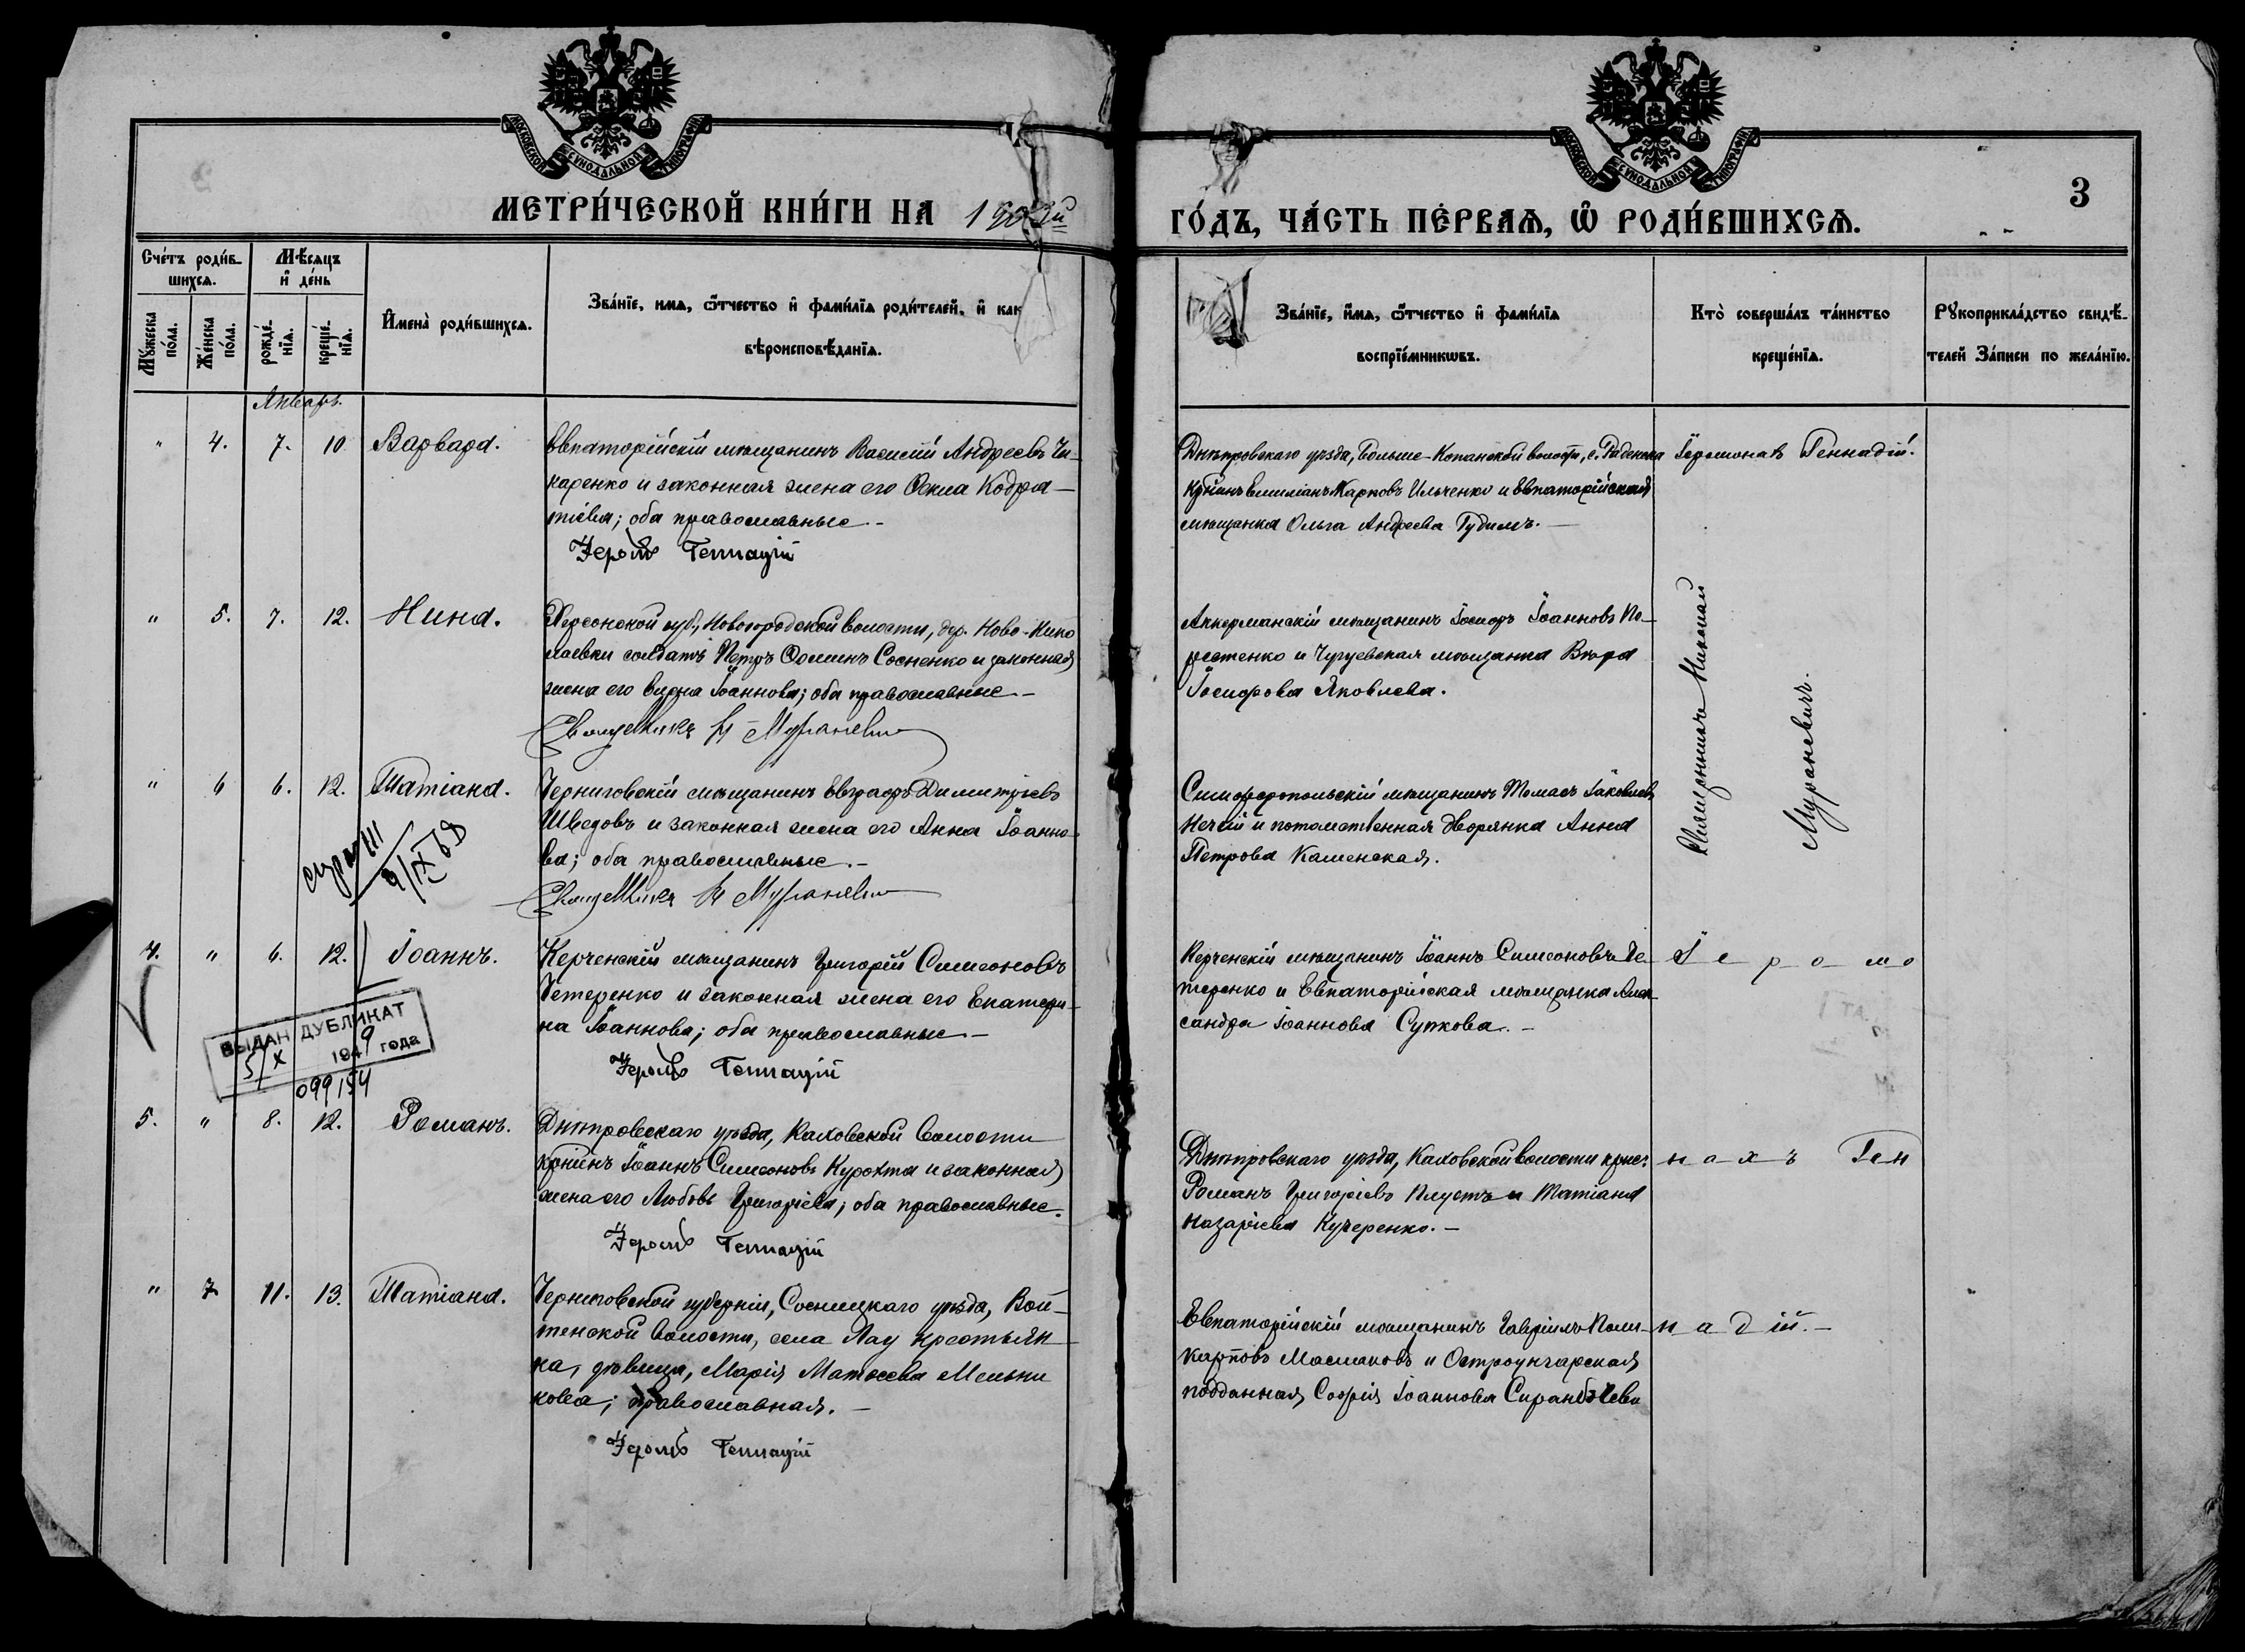 МОСКОВСКОЙ СѴНОДАЛЬНОЙ ТИПОГРАФІИ
МЕТРИ́ЧЕСКОЙ КНИ́ГИ НА
МОСКОВСКОЙ СѴНОДАЛЬНОЙ ТИПОГРАФІИ
ГО́ДЪ, ЧА́СТЬ ПЕ́РВАѦ, Ѡ РОДИ́ВШИХСѦ.
3
Сче́тъ роди́в-
шихсѧ.
Мѣ́сѧцъ
и҆ де́нь
Мꙋ́жеска
по́ла.
Же́нска
по́ла.
рожде́-
нїѧ.
креще́-
нїѧ.
И҆мена̀ роди́вшихсѧ.
Зва́нїе, имѧ, ѻ҆́тчество и҆ фамилїѧ роди́телей, и҆ как
вѣроисповѣ́данїѧ.
Зва́нїе, и҆́мѧ, ѻ҆́тчество и҆ фами́лїѧ
воспрїе́мникѡвъ.
Кто̀ соверша́лъ та́инство
креще́нїѧ.
Рꙋкоприкла́дство свидѣ́-
телей За́писи по жела́нїю.
Январь.
" 4. 7. 10 Варвара.
Евпаторійскій мѣщанинъ Василій Андреевъ Чи-
каренко и законная жена его Ѳекла Кодра-
тіева; оба православные.-
Іером Геннадій
Днѣпровскаго уѣзда, Больше-Копанской волости, с. Раденска
кр̃нинъ Емиліанъ Карповъ Ильченко и Евпаторійская
мѣщанка Ольга Андреева Гудимъ.-
Іеромонахъ Геннадій.
" 5. 7. 12. Нина.
Херсонской губ., Новогородской волости, дер. Ново-Нико
лаевки солдатъ Петръ Ѳоминъ Сосненко и законная
жена его Іоаннова; оба православные.-
Священникъ Н Мураневич
Аккерманскій мѣщанинъ Іосифъ Іоанновъ По-
рстенко и Чугуевская мѣщанка Вѣра
Іосифова Яковлева.
Священникъ Николай
Мураневичъ.
" 6 6. 12. Татіана.
Черниговскій мѣщанинъ Евграфъ Димитріевъ
Шведовъ и законная жена его Анна Іоанно-
ва; оба православные.-
Священникъ Н Мураневич
Симферопольскій мѣщанинъ Томасъ Іаковлевъ
Нечій и потомственная дворянка Анна
Петрова Каменская.
III
IX 68
4. " 6. 12. Іоаннъ.
Керченскій мѣщанинъ Григорій Симеоновъ
Тетеренко и законная жена его Екатери-
на Іоаннова; оба православные-
Іером Геннадій
Керченскій мѣщанинъ Іоаннъ Симеоновъ Те-
теренко и Евпаторійская мѣщанка Алек-
сандра Іоаннова Супкова.-
Іеромо
ВЫДАН ДУБЛИКАТ
5/X 1949 года
099154
5. " 8. 12. Романъ.
Днѣпровскаго уѣзда, Каховской волости
кр̃нинъ Іоаннъ Симеоновъ Курохта и законная
жена его Любовь Григоріева; оба православные.
Іером Геннадій
Днѣпровскаго уѣзда, Каховской волости крес.
Романъ Григоріевъ Плустъ и Татіана
Назаріева Кучеренко.-
нахъ Ген
" 7 11. 13. Татіана.
Черниговской губерніи, Сосницкаго уѣзда, Вой-
тенской волости, села Лау крестьян-
ка, дѣвица, Марія Матѳеева Мельни
кова; православная.-
Іером Геннадій
Евпаторійскій мѣщанинъ Гавріилъ Поли-
карповъ Маслаковъ и Остроунгарская
подданная Софія Іоаннова
надій.-